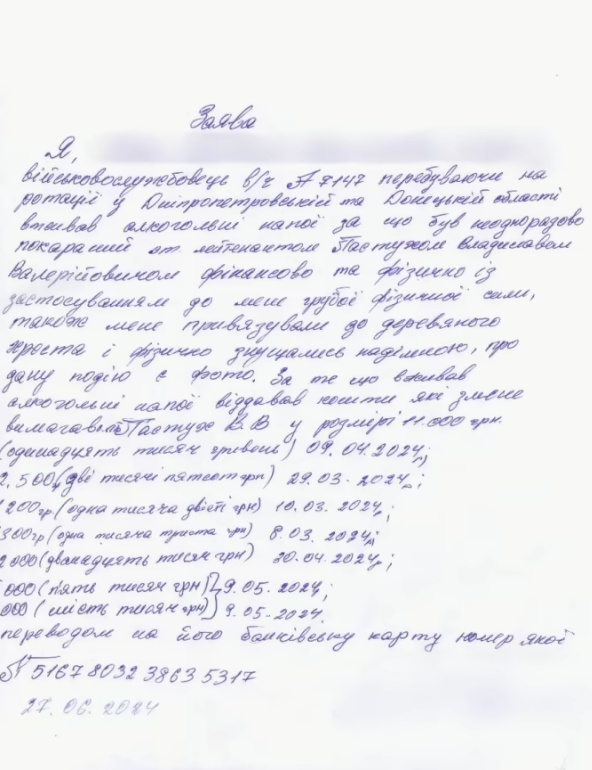 Заява
Я,
військовослужбовець в/ч А 7147 перебуваючи на
ротації у Дніпропетровській та Донецькій області
вживав алкогольні напої за що був неодноразово
покараний ст. лейтенантом Пастухом Владиславом
Валерійовичом фінансово та фізично із
застосуванням до мене грубої фізичної сили,
також мене привязували до деревяного
хреста і фізично знущались наді мною, про
дану подію є фото. За те що вживав
алкогольні напої віддавав кошти які з мене
вимагав Пастух В.В у розмірі 11.000 грн.
(одинадцять тисяч гривень) 09.04.2024р;
2.500 (дві тисячі пятсот грн) 29.03.2024р;
1200гр. (одна тисяча двісті грн) 10.03.2024р;
300гр (одна тисяча триста грн) 8.03.2024р;
2000 (дванадцять тисяч грн) 20.04.2024р;
000 (п'ять тисяч грн) 9.05.2024р;
000 (шість тисяч грн) 9.05.2024.
переводом на його банківську карту номер якої
№ 5167 8032 3863 5317
27.06.2024